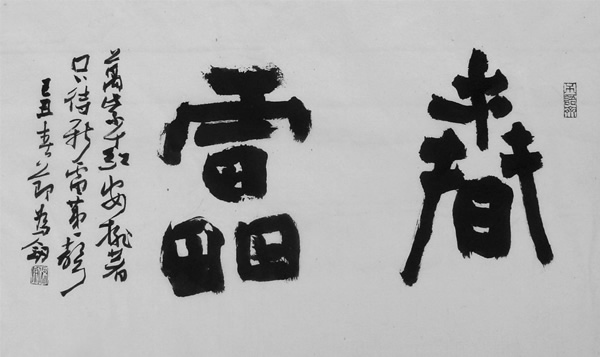 春雷
萬紫千紅安排著
只待新雷第一聲
己丑春節